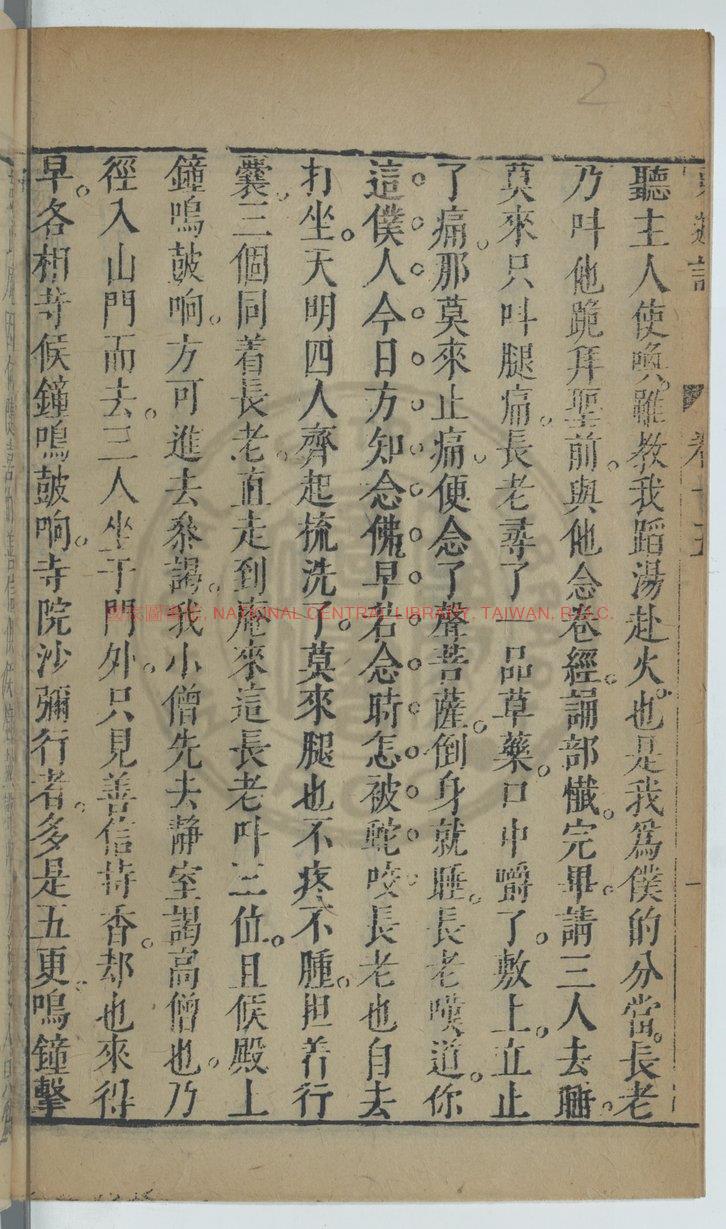 2
聽主人使喚。雖教我蹈湯赴火。也是我爲僕的分當。長老
乃叫他跪拜聖前。與他念卷經。誦部懺。完畢。請三人去睡。
莫來只叫腿痛。長老尋了一品草藥。口中嚼了。敷上。立止
了痛。那莫來止痛。便念了聲菩薩。倒身就睡。長老嘆道。你
這僕人今日方知念佛。早若念時怎被蛇咬。長老也自去
打坐。天明四人齊起梳洗了。莫來腿也不疼不腫。担着行
囊。三個同着長老。直走到庵來。這長老叫三位。且候殿上
鐘鳴鼓响。方可進去叅謁。我小僧先去靜室謁高僧也。乃
徑入山門而去。三人坐于門外。只見善信持香。却也來得
早。各相等候鐘鳴鼓响。寺院沙彌行者。多是五更。鳴鐘擊
國家圖書館, NATIONAL CENTRAL LIBRARY, TAIWAN, R.O.C.